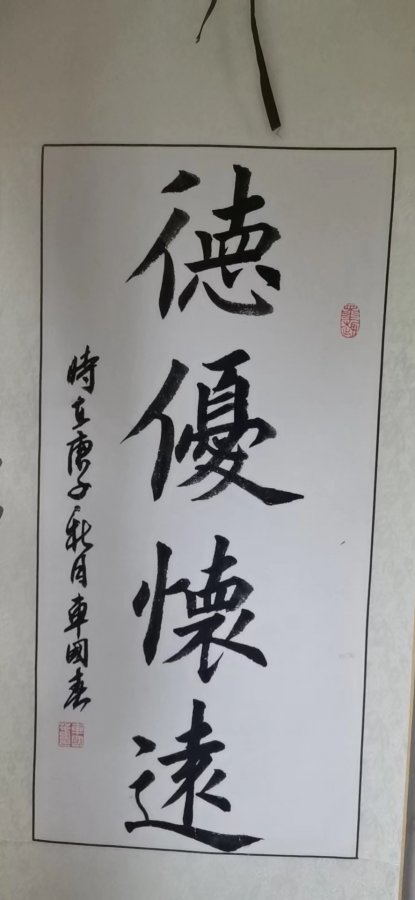 德優懷遠
時在庚子秋月車國春